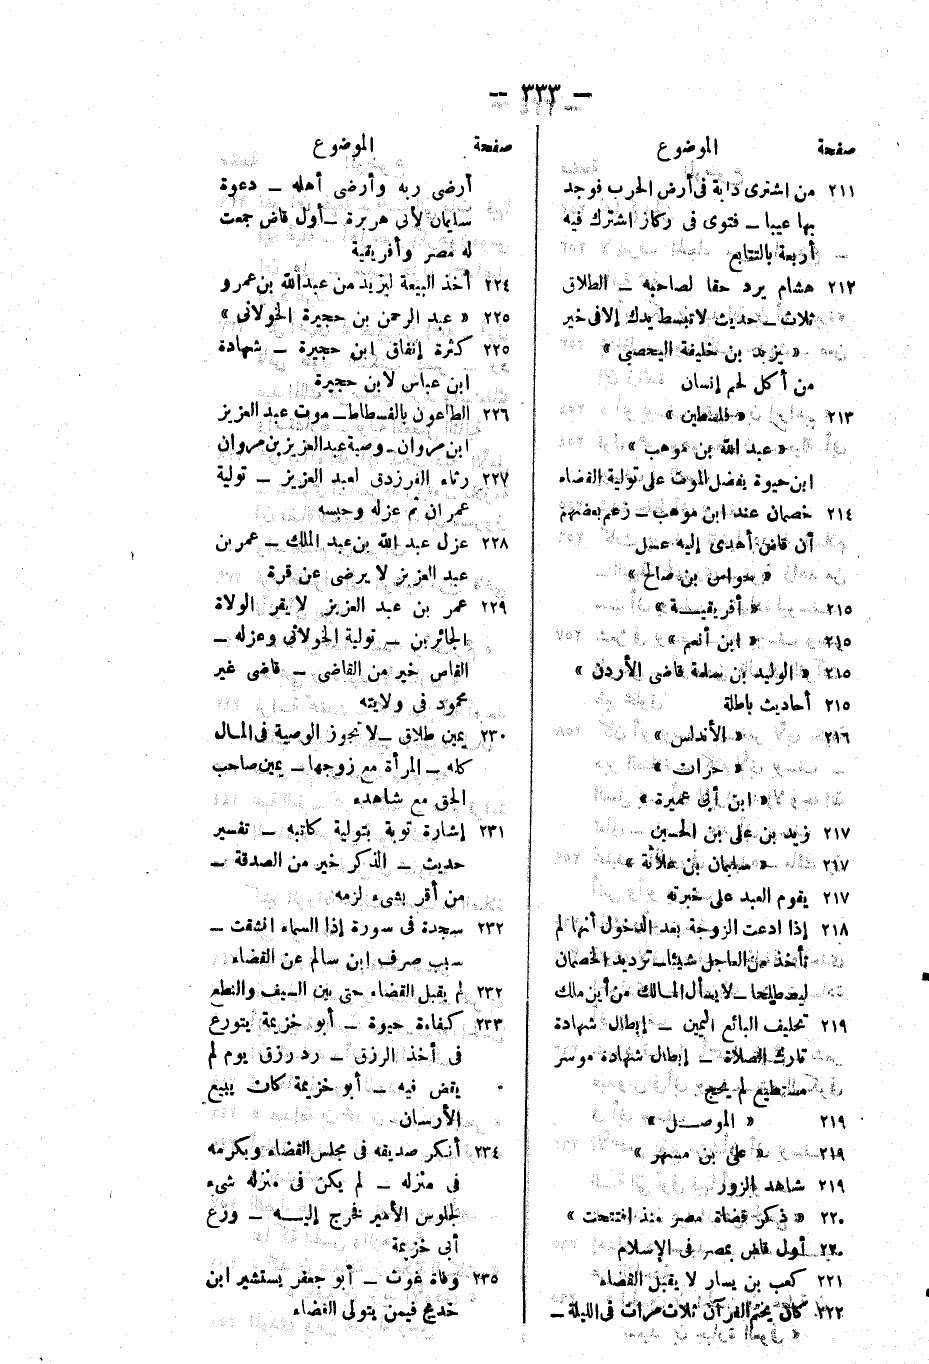 — ٣٣٣ —
صفحة الموضوع
٢١١ من اشترى دابة فى أرض الحرب فوجد
بها عيبا — فتوى فى ركاز اشترك فيه
أربعة بالتتابع
٢١٢ هشام يرد حقا لصاحبه — الطلاق
ثلاث — حديث لا تبسط يدك إلا فى خير
« يزيد بن خليفة اليحصبي »
من أكل لحم إنسان
٢١٣ « فلسطين »
« عبد الله بن موهب »
ابن حيوة يفضل الموت على تولية القضاء
٢١٤ خصمان عند ابن موهب — زعم بعضهم
أن قاض أهدى إليه عسل
« حواس بن صالح »
٢١٥ « أفريقيــة »
٢١٥ « ابن أنعم »
٢١٥ « الوليد بن سلمة قاضى الأردن »
٢١٥ أحاديث باطلة
٢١٦ « الأندلس »
« حران »
« ابن أبى عميرة »
٢١٧ زيد بن على بن الحسين
٢١٧ « سليمان بن علاثة »
٢١٧ يقوم العبد على خبرته
٢١٨ إذا ادعت الزوجة بعد الدخول أنها لم
تأخذ من العاجل شيئا — ترديد الخصمان
ليصطلحا — لا يسأل المالك من أين ملك
٢١٩ تحليف البائع اليمين — إبطال شهادة
تارك الصلاة — إبطال شهادة موسر
مستطيع لم يحج
٢١٩ « الموصــل »
٢١٩ « على بن مسهر »
٢١٩ شاهد الزور
٢٢٠ « ذكر قضاة مصر منذ افتتحت »
٢٢٠ أول قاض بمصر فى الإسلام
٢٢١ كعب بن يسار لا يقبل القضاء
٢٢٢ كان يختم القرآن ثلاث مرات فى الليلة —
صفحة الموضوع
أرضى ربه وأرضى أهله — دعوة
سليمان لأبى هريرة — أول قاض جمعت
له مصر وأفريقية
٢٢٤ أخذ البيعة ليزيد من عبد الله بن عمرو
٢٢٥ « عبد الرحمن بن حجيرة الخولانى »
٢٢٥ كثرة إنفاق ابن حجيرة — شهادة
ابن عباس لابن حجيرة
٢٢٦ الطاعون بالفسطاط — موت عبد العزيز
ابن مروان — وصية عبد العزيز بن مروان
٢٢٧ رثاء الفرزدق لعبد العزيز — تولية
عمران ثم عزله وحبسه
٢٢٨ عزل عبد الله بن عبد الملك — عمر بن
عبد العزيز لا يرضى عن قرة
٢٢٩ عمر بن عبد العزيز لا يقر الولاة
الجائرين — تولية الخولانى وعزله —
القاس خير من القاضى — قاضى غير
محمود فى ولايته
٢٣٠ يمين طلاق — لا تجوز الوصية فى المال
كله — المرأة مع زوجها — يمين صاحب
الحق مع شاهده
٢٣١ إشارة توبة بتولية كاتبه — تفسير
حديث — الذكر خير من الصدقة —
من أقر بشىء لزمه
٢٣٢ سجدة فى سورة إذا السماء انشقت —
سبب صرف ابن سالم عن القضاء
٢٣٢ لم يقبل القضاء حتى بين السيف والنطع
٢٣٣ كفاءة حيوة — أبو خزيمة يتورع
فى أخذ الرزق — رد رزق يوم لم
يقض فيه — أبو خزيمة كان يبيع
الأرسان
٢٣٤ أنكر صديقه فى مجلس القضاء ويكرمه
فى منزله — لم يكن فى منزله شىء
لجلوس الأمير فخرج إليــه — وزع
أبى خزيمة
٢٣٥ وفاة غوث — أبو جعفر يستشير ابن
خديج فيمن يتولى القضاء